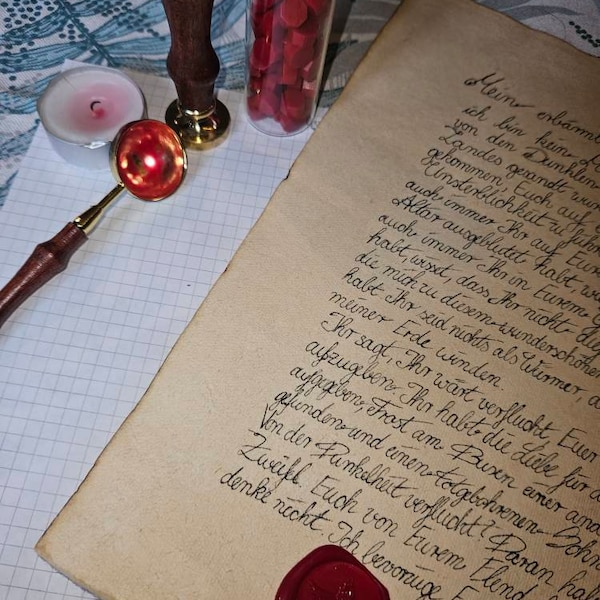 Mein erbärml
ich bin kein
von den Dunklen
Landes gesandt wur
gekommen, Euch auf d
Unsterblichkeit zu führe
auch immer Ihr auf Eure
Altar ausgeblutet habt, w
auch immer Ihr in Eurem G
habt, wisset, dass Ihr nicht die
die mich zu diesem wunderschönen
habt. Ihr seid nichts als Würmer, d
meiner Erde winden.
Ihr sagt, Ihr wärt verflucht Euer
aufzugeben. Ihr habt die Liebe für d
aufgegeben, Trost am Busen einer and
gefunden und einen totgebohrenen Sohn
Von der Dunkelheit verflucht? Daran hab
Zweifel. Euch von Eurem Elend
denke nicht. Ich bevorzuge E